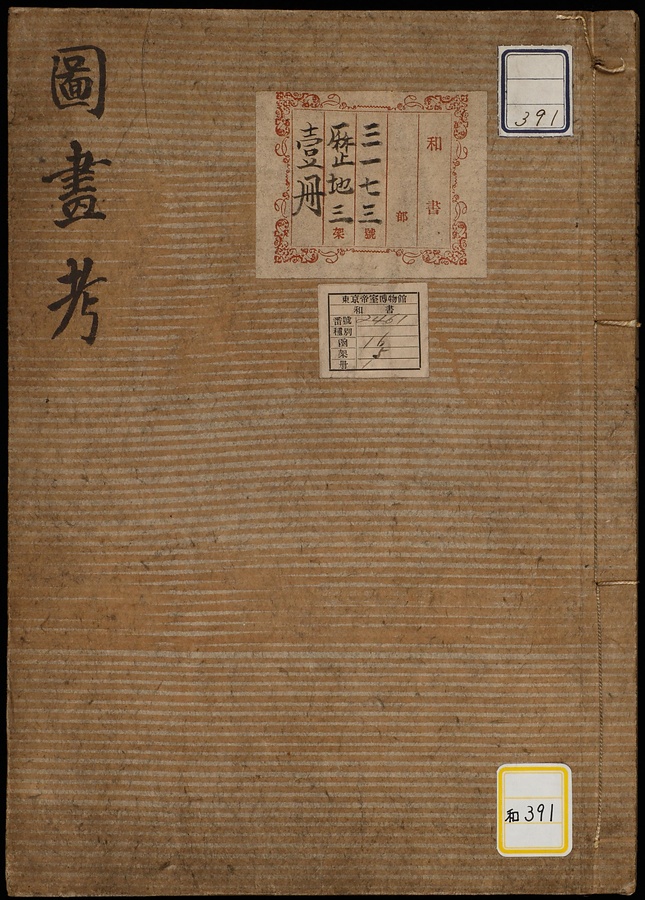 圖畫考
391
和書
部
三一七三號
歷地三架
壹冊
東京帝室博物館
和書
番號 2461
種別
函 16
架 5
冊 1
和391